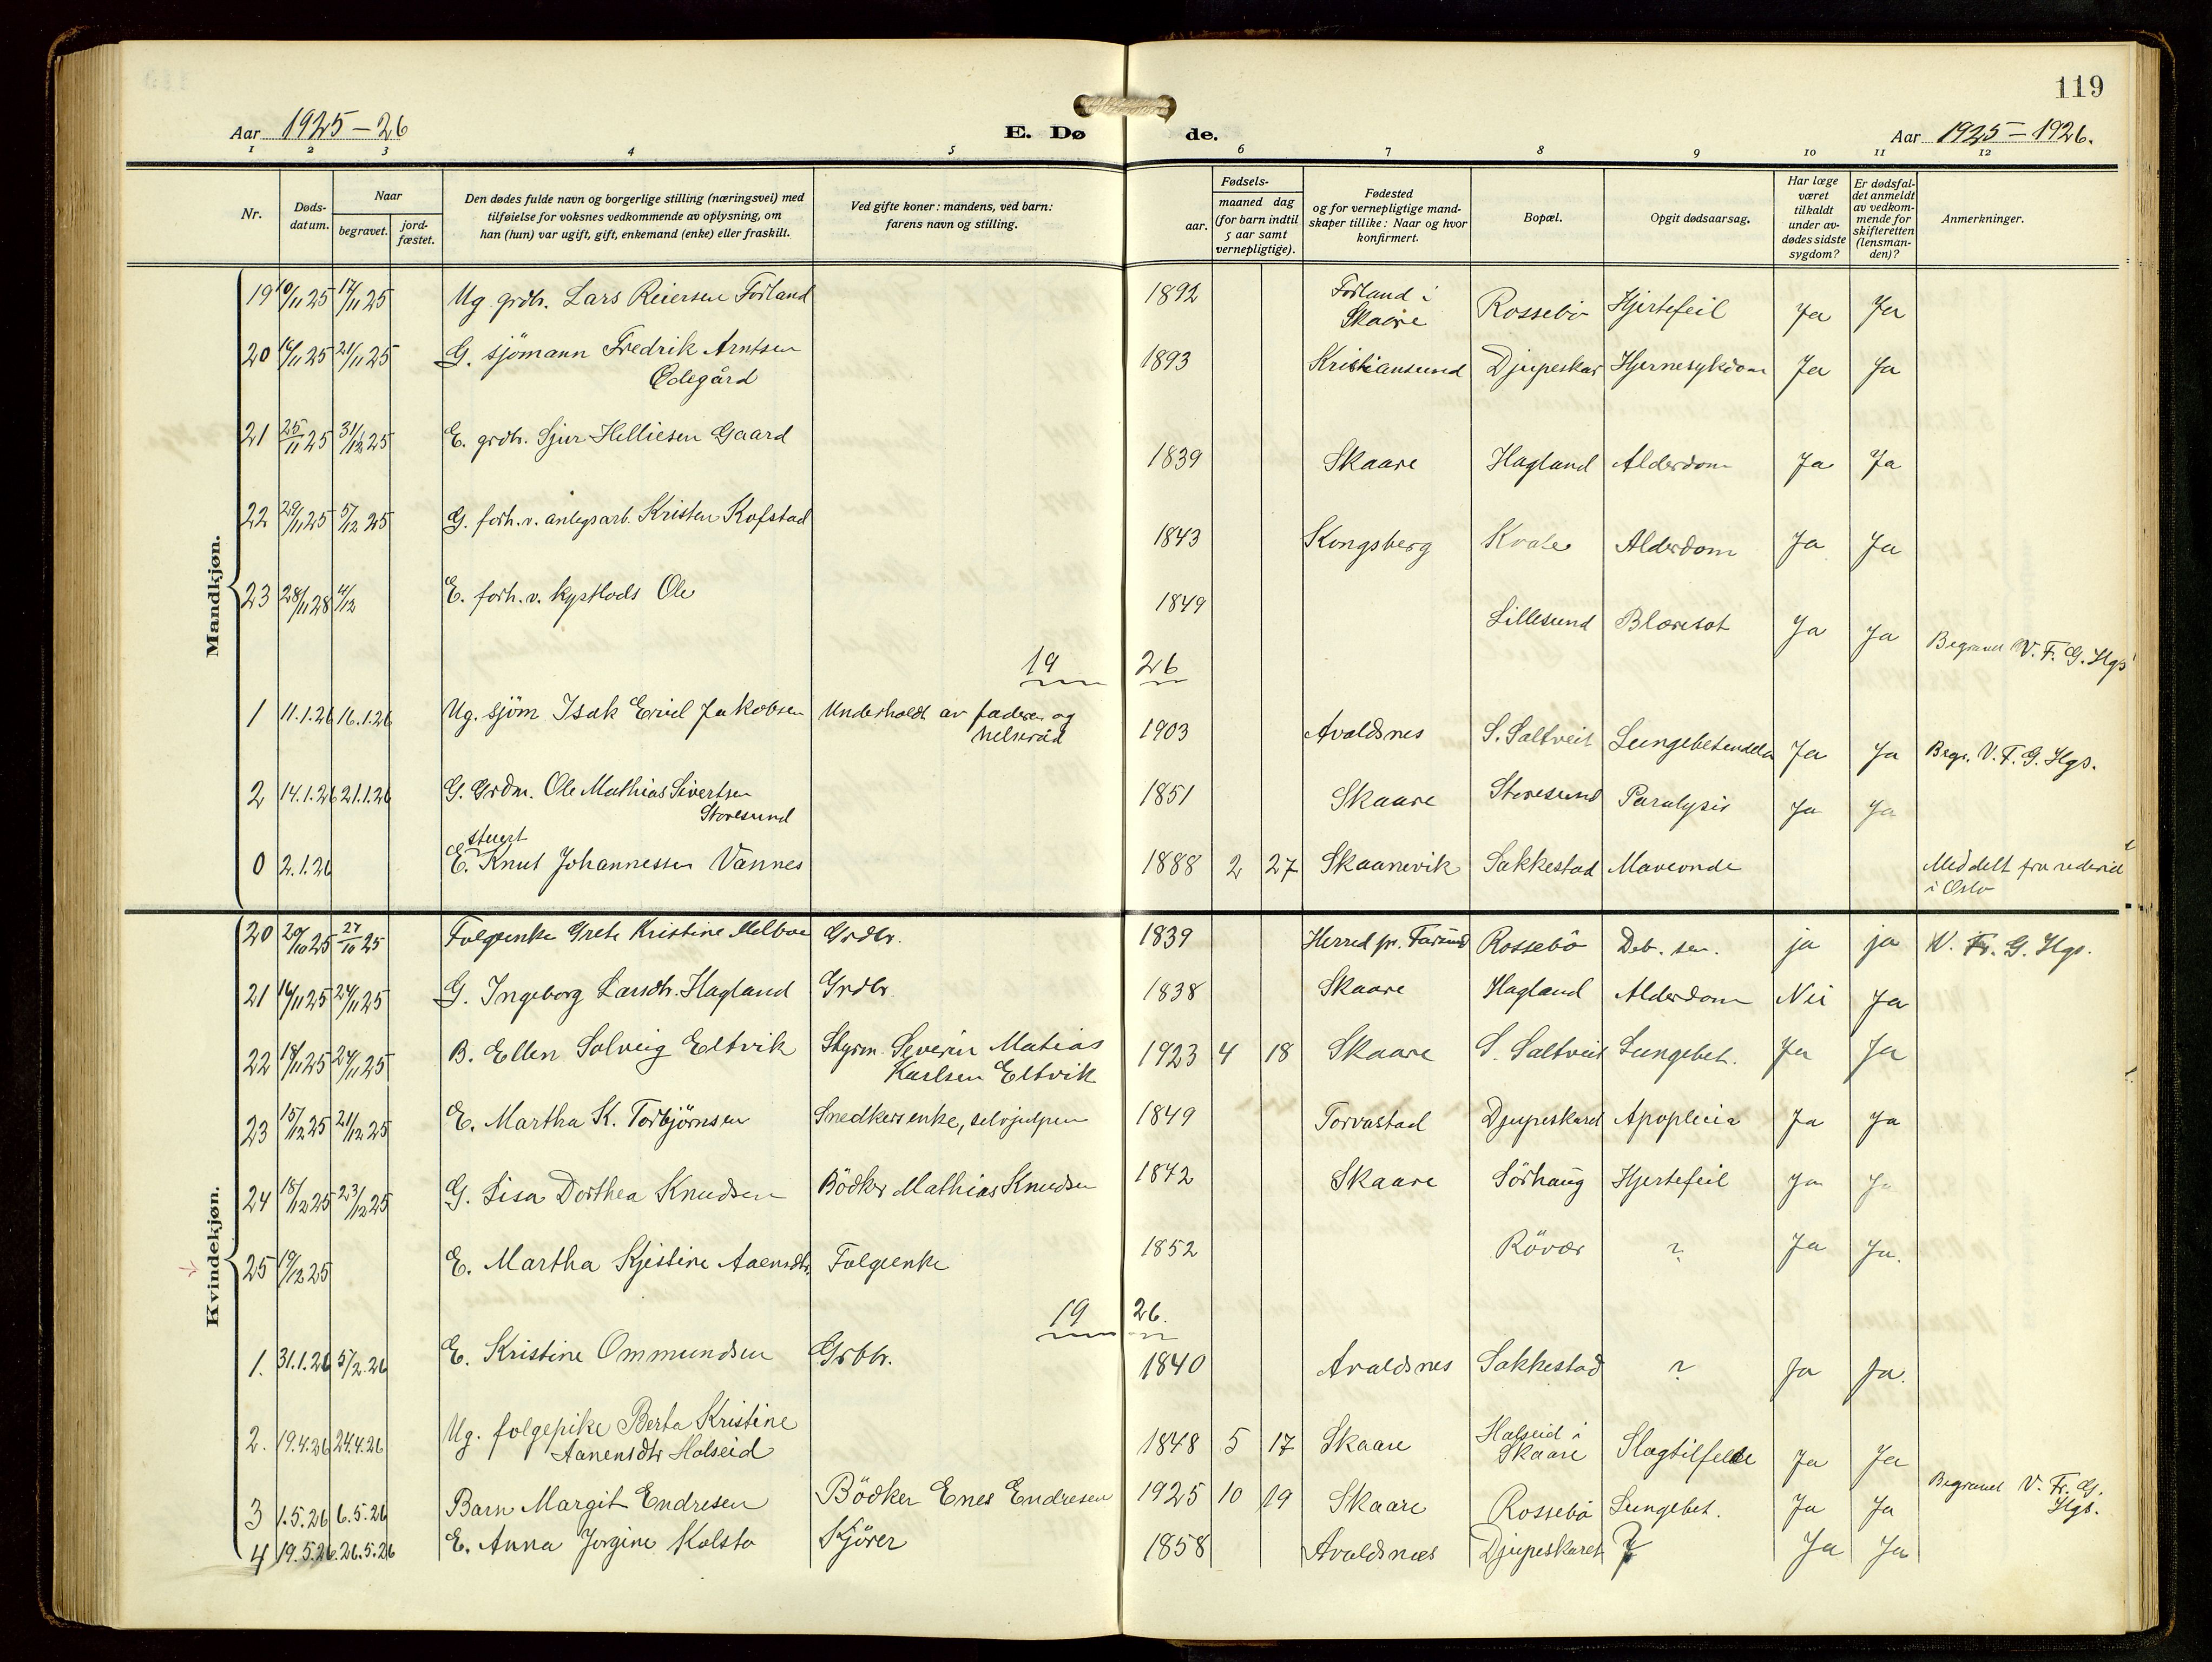 119
Aar 1925-26
E. Dø
de.
Aar 1925-1926.
1 2 3 4 5 6 7 8 9 10 11 12
Nr.
Døds-datum.
Naar
begravet.
jord-fæstet.
Den dødes fulde navn og borgerlige stilling (næringsvei) med tilføielse for voksnes vedkommende av oplysning, om han (hun) var ugift, gift, enkemand (enke) eller fraskilt.
Ved gifte koner: mandens, ved barn: farens navn og stilling.
Fødsels-
aar.
maaned dag
(for barn indtil 5 aar samt vernepligtige).
Fødested og for vernepligtige mandskaper tillike: Naar og hvor konfirmert.
Bopæl.
Opgit dødsaarsag.
Har læge været tilkaldt under avdødes sidste sygdom?
Er dødsfaldet anmeldt av vedkommende for skifteretten (lensmanden)?
Anmerkninger.
Mandkjøn.
19 10/11 25 17/11 25 Ug. grdbr. Lars Reiersen Förland 1892 Förland i Skaare Rossebö Hjertefeil Ja Ja
20 16/11 25 21/11 25 G. sjömann Fredrik Arntsen Ödegård 1893 Kristiansund Djupeskar Hjernesykdom Ja Ja
21 25/11 25 31/12 25 E. grdbr. Sjur Helliesen Gaard 1839 Skaare Hagland Alderdom Ja Ja
22 29/11 25 5/12 25 G. forh.v. anlegsarb. Kristen Kofstad 1843 Kongsberg Kvale Alderdom Ja Ja
23 28/11 28 4/12 E. forh.v. kystlods Ole 1849 Lillesund Blæresot Ja Ja Begravet V. F. G. Hgs
19 26
1 11.1.26 16.1.26 Ug. sjöm Isak Jakobsen Underholdt av faderen og helseråd 1903 Avaldsnes S. Saltveit Lungebetendelse Ja Ja Begr. V. F. G. Hgs.
2 14.1.26 21.1.26 G. Grdm. Ole Mathias Sivertsen Storesund 1851 Skaare Storesund Paralysis Ja Ja
0 2.1.26 E. stuert Knut Johannessen Vannes 1888 2 27 Skaanevik Sakkestad Maveonde Meddelt fra rederiet i Oslo
Kvindekjøn.
20 20/10 25 27/10 25 Folgeenke Grete Kristine Melboe Grdbr. 1839 Herred pr. Farsund Rossebö Deb. sen. ja ja V. Fr. G. Hgs.
21 16/11 25 24/11 25 G. Ingeborg Larsdtr. Hagland Grdbr. 1838 Skaare Hagland Alderdom Nei Ja
22 18/11 25 24/11 25 B. Ellen Solveig Eltvik Styrm. Severin Matias Karlsen Eltvik 1923 4 18 Skaare S. Saltveit Lungebet. Ja Ja
23 15/12 25 21/12 25 E. Martha K. Torbjörnsen Snedkersenke, selvhjulpen 1849 Torvastad Djupeskard Apoplexia Ja Ja
24 18/12 25 23/12 25 G. Lisa Dorthea Knudsen Bödker Mathias Knudsen 1842 Skaare Sörhaug Hjertefeil Ja Ja
25 19/12 25 E. Martha Kjestine Aaensdtr. Folgeenke 1852 Rövær ? Ja Ja.
19 26.
1. 31.1.26 5/2.26 E. Kristine Ommundsen Grbbr. 1840 Avaldsnes Sakkestad ? Ja Ja.
2. 19.4.26 24.4.26 Ug. folgepike Berta Kristine Aanensdtr Halseid 1848 5 17 Skaare Halseid i Skaare Slagtilfelde Ja Ja
3 1.5.26 6.5.26 Barn Margit Endresen Bödker Enes Endresen 1925 10 19 Skaare Rossebö Lungebet. Ja Ja Begravet V. Fr. G. Hgs.
4 19.5.26. 26.5.26 E. Anna Jorgine Kolstø Kjörer 1858 Avaldsnes Djupeskaret ? Ja Ja